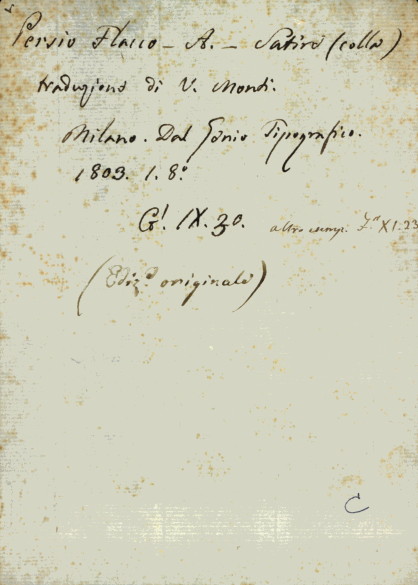 Persio Flacco - A. - Satire (colla)
traduzione di V. Monti.
Milano. Dal Genio Tipografico.
1803. 1. 8°
G! IX. 30. altro esemp. Z.ª XI. 23
(Ediz.e originale)
C